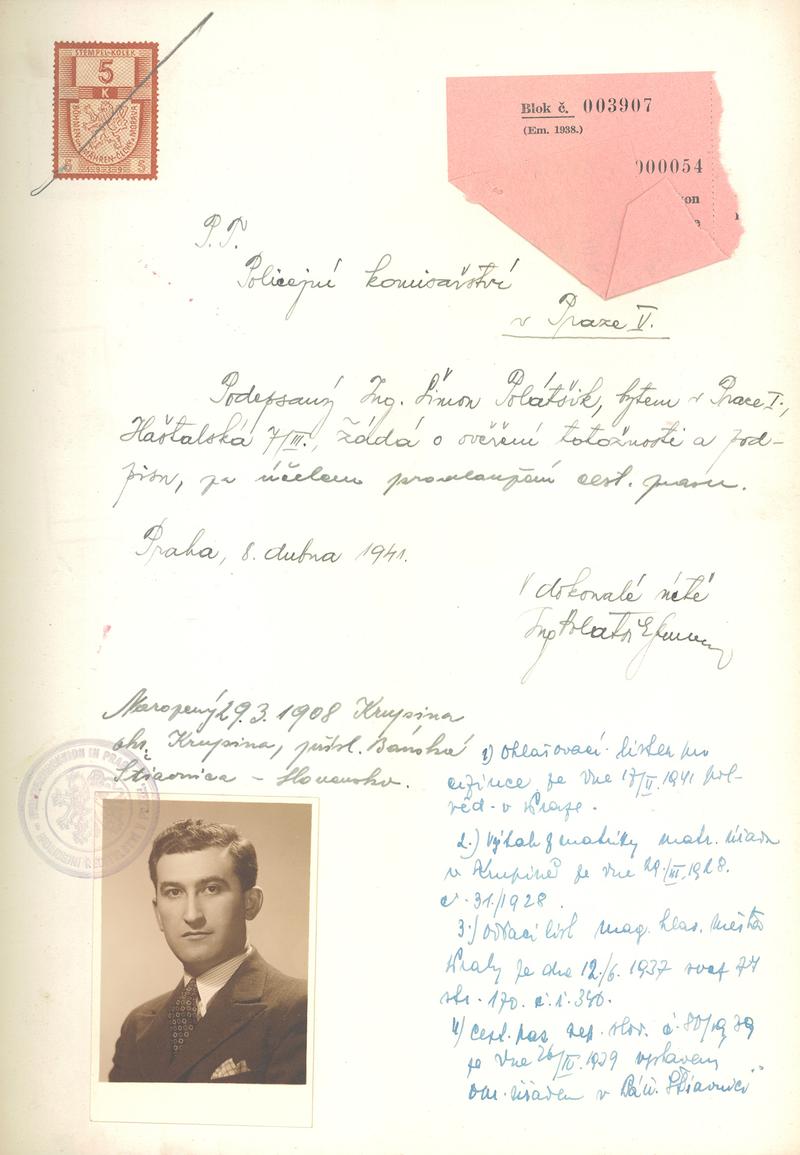 STEMPEL-KOLEK
5
K
BÖHMEN MÄHREN-ČECHY MORAVA
5 1939 5
Blok č. 003907
(Em. 1938.)
000054
P. T.
Policejní komisařství
v Praze V.
Podepsaný Ing. Šimon Polátšik, bytem v Praze I.,
Haštalská 7/III., žádá o ověření totožnosti a pod-
pisu, za účelem prodloužení cest. pasu.
Praha, 8. dubna 1941.
V dokonalé úctě
Ing
Narozený 29.3.1908 Krupina
okr. Krupina, přísl. Báňská
Štiavnica - Slovensko.
1) Ohlašovací lístek pro
cizince ze dne 17/II. 1941 pol.
v Praze.
2.) Výtah z matriky matr. úřadu
v Krupině ze dne 29./III. 1928.
č. 31./1928.
3.) Oddací list mag. hlav. města
Prahy ze dne 12./6. 1937 svaz 74
str. 170. č. ř. 340.
4) cest. pas rep. slov. č. 80/1939
ze dne 26/IV. 1939 vystavený
okr. úřadem v Báň. Štiavnici